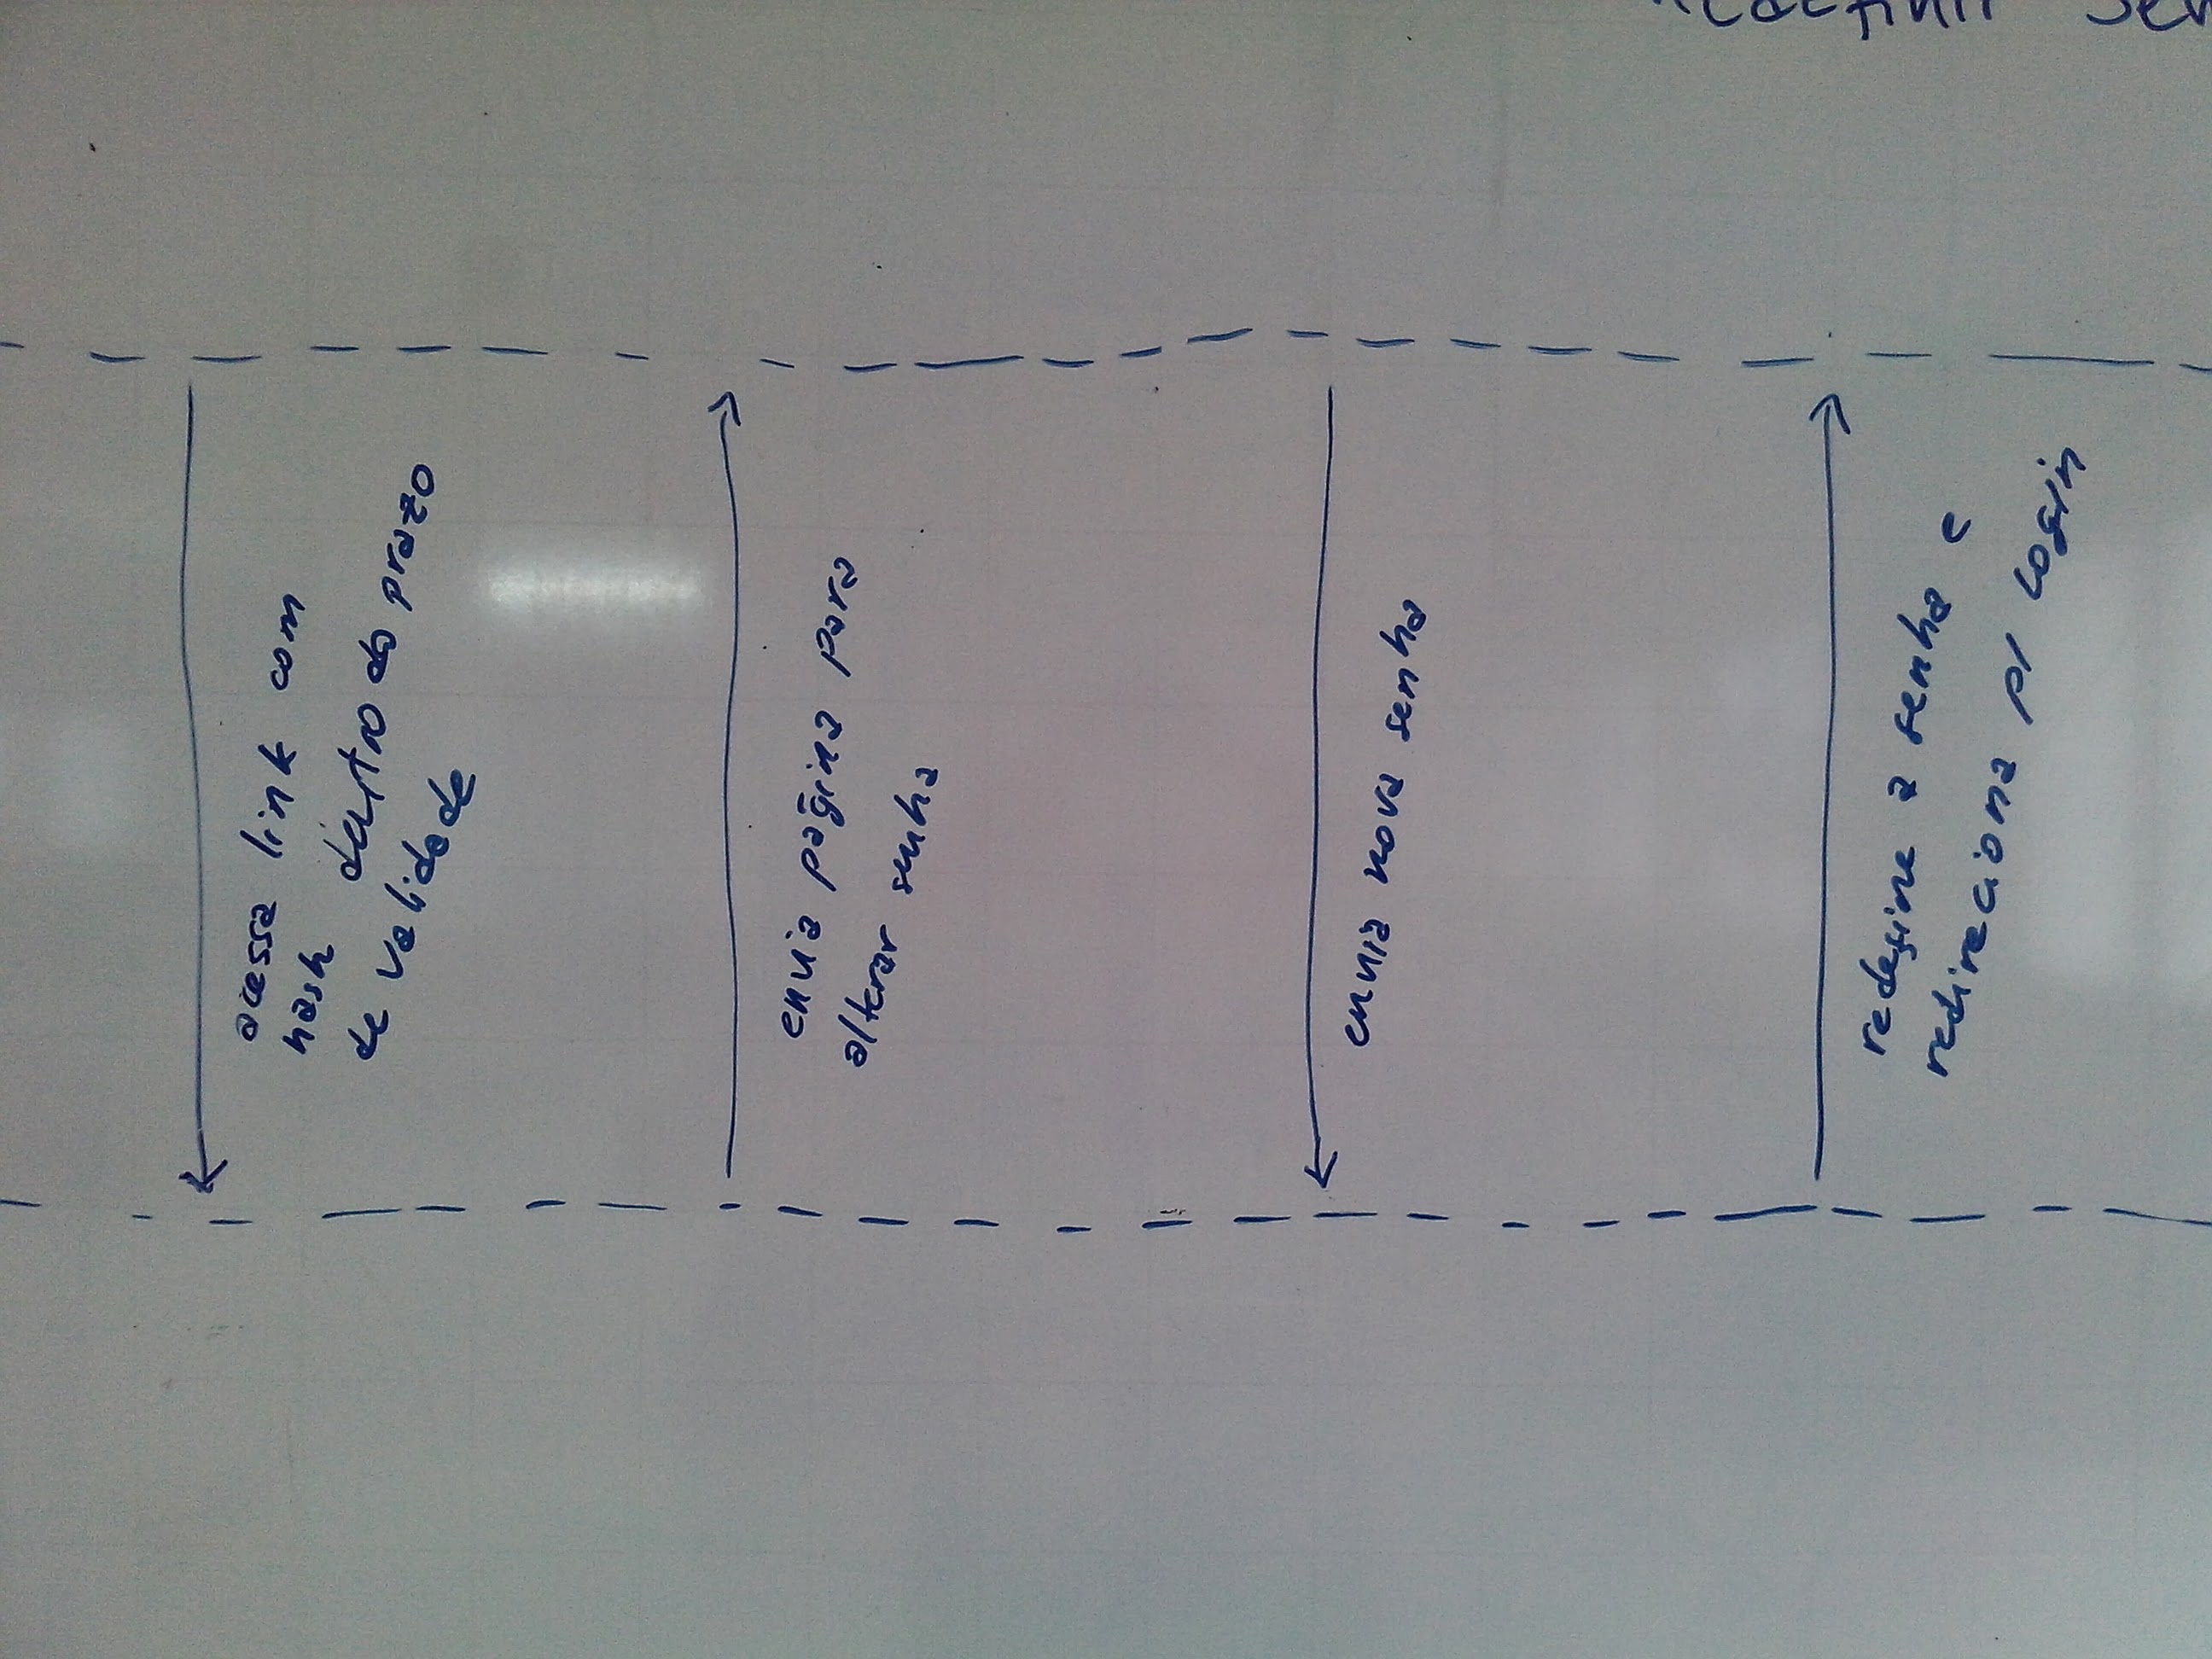 acessa link com
hash dentro do prazo
de validade
envia página para
alterar senha
envia nova senha
redefine a senha e
redireciona p/ login